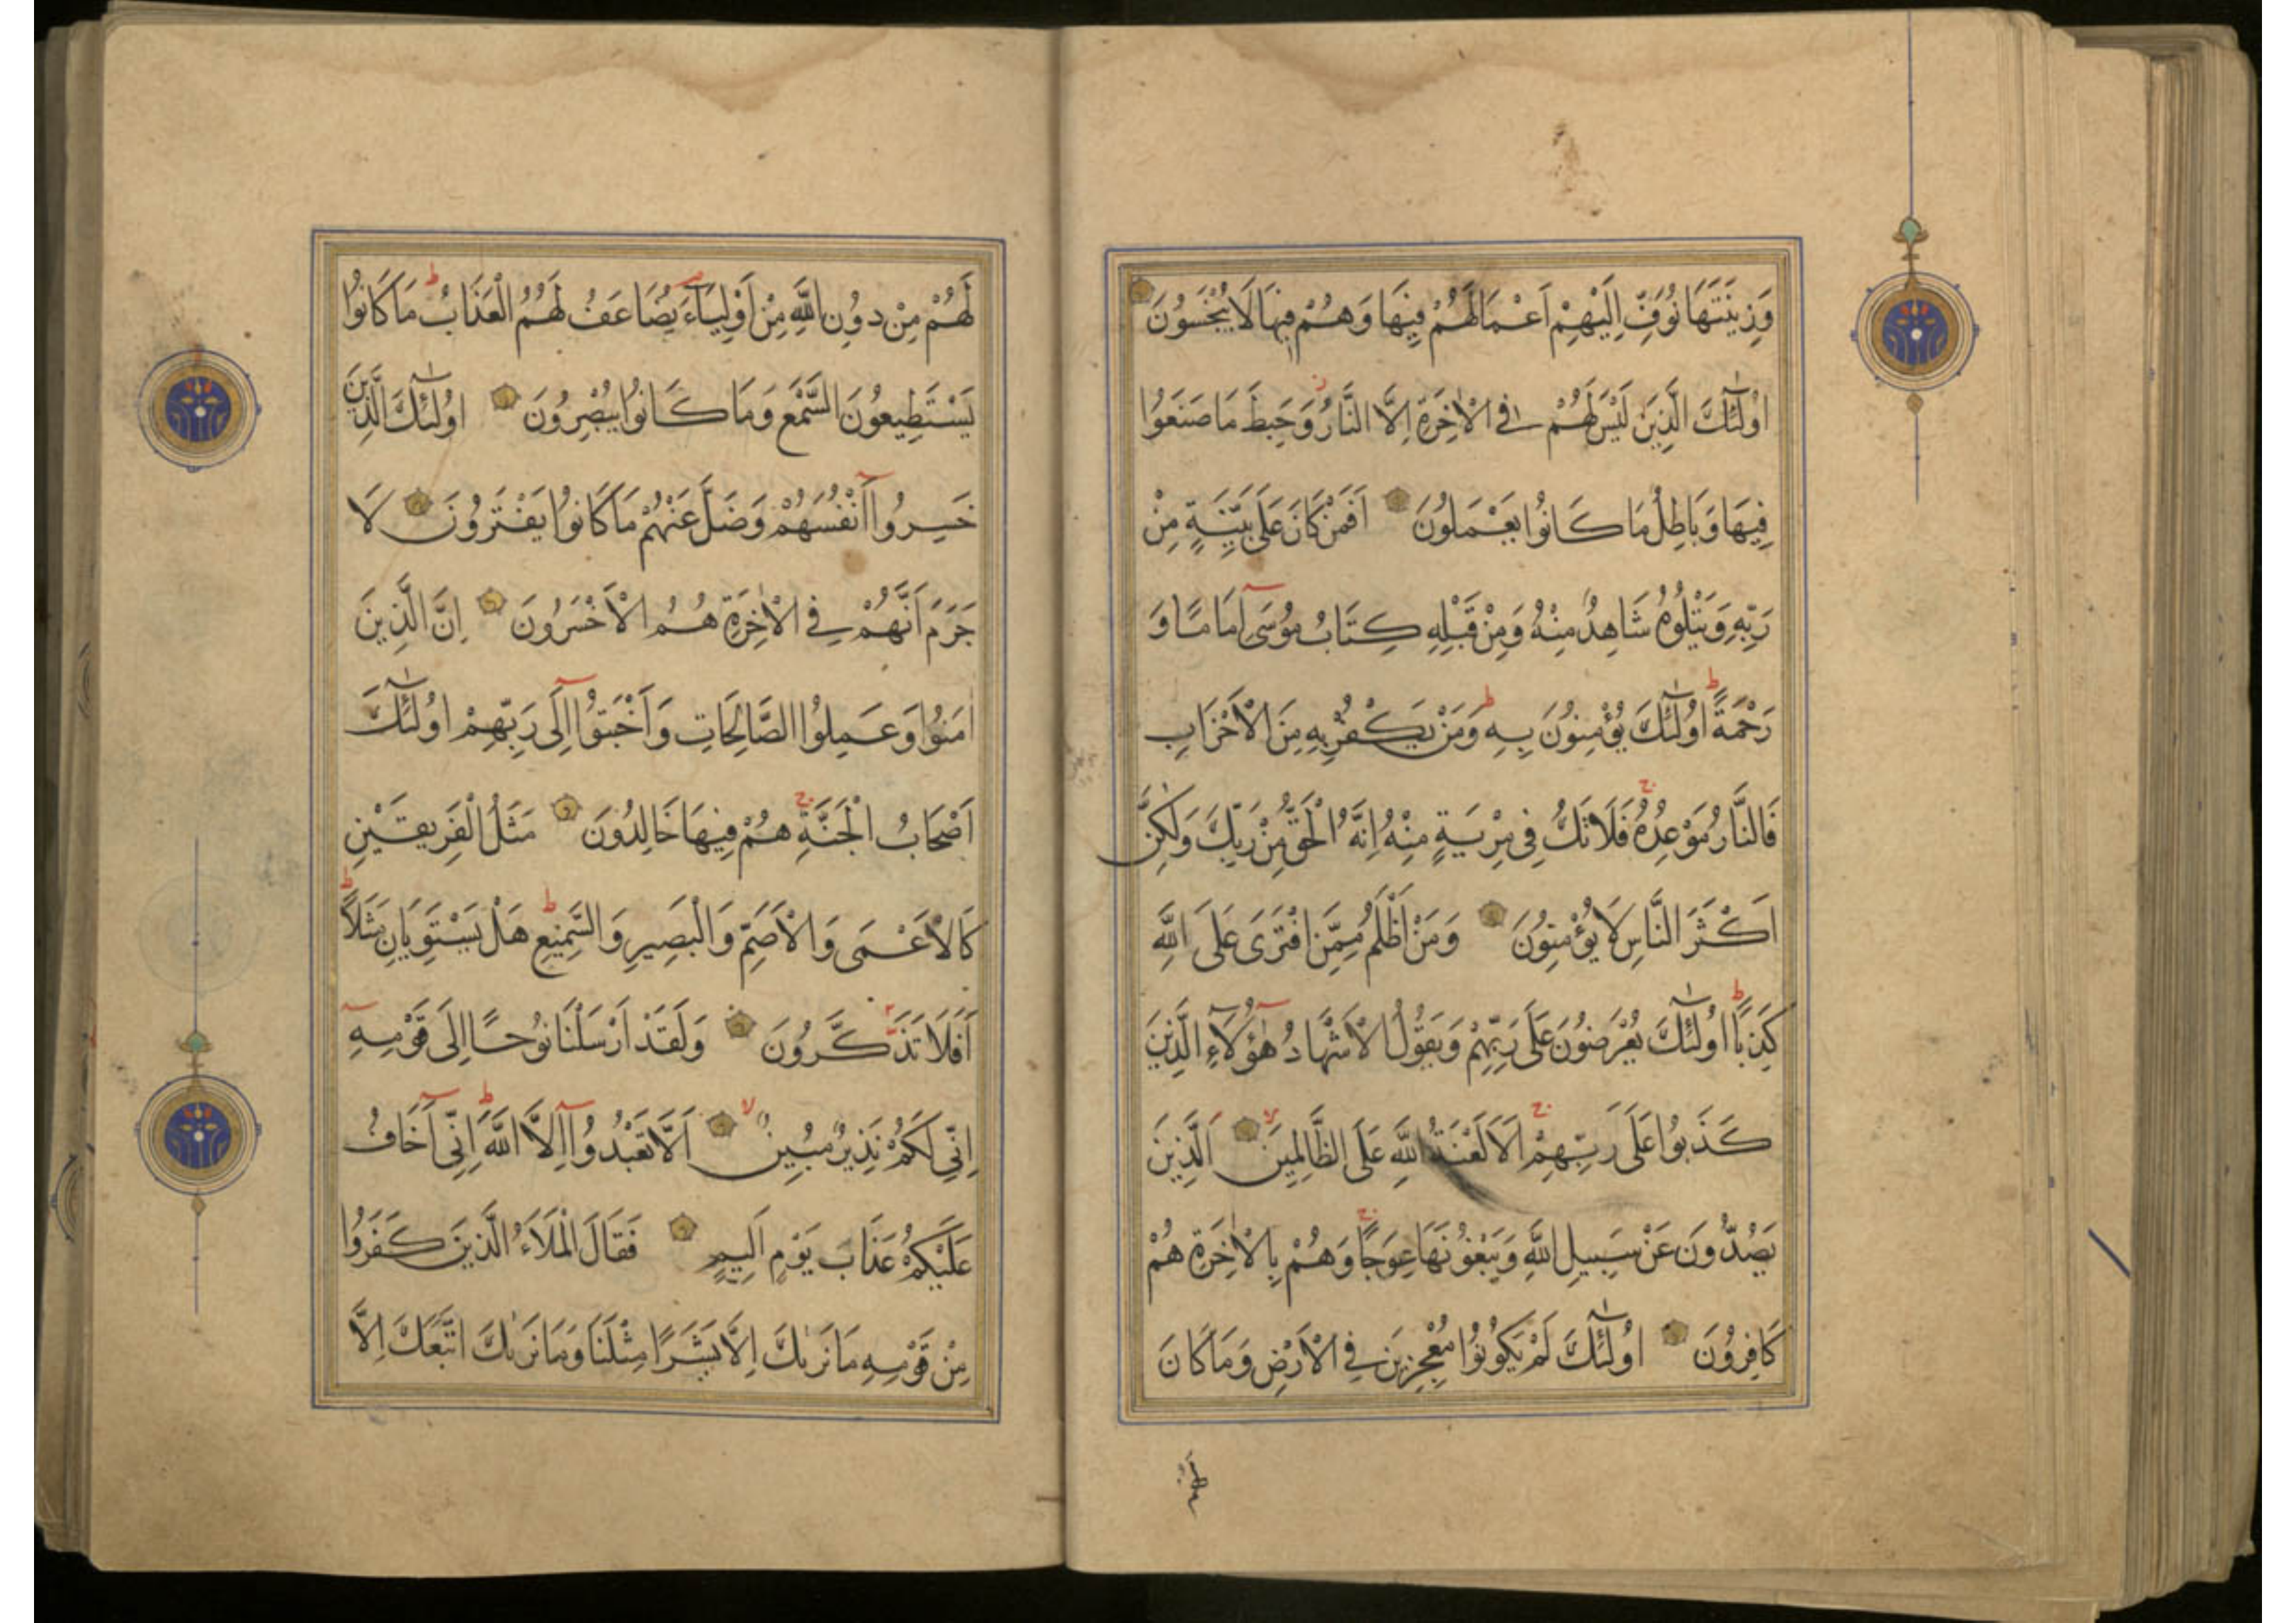 وَزِينَتَهَا نُوَفِّ اِلَيْهِمْ اَعْمَالَهُمْ فِيهَا وَهُمْ فِيهَا لَا يُبْخَسُونَ
اُولٰٓئِكَ الَّذِينَ لَيْسَ لَهُمْ فِي الْاٰخِرَةِ اِلَّا النَّارُ وَحَبِطَ مَا صَنَعُوا
فِيهَا وَبَاطِلٌ مَا كَانُوا يَعْمَلُونَ اَفَمَنْ كَانَ عَلَى بَيِّنَةٍ مِنْ
رَبِّهِ وَيَتْلُوهُ شَاهِدٌ مِنْهُ وَمِنْ قَبْلِهِ كِتَابُ مُوسَىٓ اِمَامًا وَ
رَحْمَةً ط اُولٰٓئِكَ يُؤْمِنُونَ بِهِ ط وَمَنْ يَكْفُرْ بِهِ مِنَ الْاَحْزَابِ
فَالنَّارُ مَوْعِدُهُ ج فَلَا تَكُ فِي مِرْيَةٍ مِنْهُ اِنَّهُ الْحَقُّ مِنْ رَبِّكَ وَلٰكِنَّ
اَكْثَرَ النَّاسِ لَا يُؤْمِنُونَ وَمَنْ اَظْلَمُ مِمَّنِ افْتَرَى عَلَى اللَّهِ
كَذِبًا ط اُولٰٓئِكَ يُعْرَضُونَ عَلَى رَبِّهِمْ وَيَقُولُ الْاَشْهَادُ هٰٓؤُلَآءِ الَّذِينَ
كَذَبُوا عَلَى رَبِّهِمْ ج اَلَا لَعْنَةُ اللَّهِ عَلَى الظَّالِمِينَ لا اَلَّذِينَ
يَصُدُّونَ عَنْ سَبِيلِ اللَّهِ وَيَبْغُونَهَا عِوَجًا ج وَهُمْ بِالْاٰخِرَةِ هُمْ
كَافِرُونَ اُولٰٓئِكَ لَمْ يَكُونُوا مُعْجِزِينَ فِي الْاَرْضِ وَمَا كَانَ
لَهُمْ
لَهُمْ مِنْ دُونِ اللَّهِ مِنْ اَوْلِيَآءَ يُضَاعَفُ لَهُمُ الْعَذَابُ ط مَا كَانُوا
يَسْتَطِيعُونَ السَّمْعَ وَمَا كَانُوا يُبْصِرُونَ اُولٰٓئِكَ الَّذِينَ
خَسِرُوٓا اَنْفُسَهُمْ وَضَلَّ عَنْهُمْ مَا كَانُوا يَفْتَرُونَ لَا
جَرَمَ اَنَّهُمْ فِي الْاٰخِرَةِ هُمُ الْاَخْسَرُونَ اِنَّ الَّذِينَ
اٰمَنُوا وَعَمِلُوا الصَّالِحَاتِ وَاَخْبَتُوٓا اِلَى رَبِّهِمْ اُولٰٓئِكَ
اَصْحَابُ الْجَنَّةِ ج هُمْ فِيهَا خَالِدُونَ مَثَلُ الْفَرِيقَيْنِ
كَالْاَعْمَى وَالْاَصَمِّ وَالْبَصِيرِ وَالسَّمِيعِ ط هَلْ يَسْتَوِيَانِ مَثَلًا ط
اَفَلَا تَذَكَّرُونَ وَلَقَدْ اَرْسَلْنَا نُوحًا اِلَى قَوْمِهِٓ
اِنِّي لَكُمْ نَذِيرٌ مُبِينٌ لا اَلَّا تَعْبُدُوٓا اِلَّا اللَّهَ ط اِنِّيٓ اَخَافُ
عَلَيْكُمْ عَذَابَ يَوْمٍ اَلِيمٍ فَقَالَ الْمَلَاُ الَّذِينَ كَفَرُوا
مِنْ قَوْمِهِ مَا نَرٰيكَ اِلَّا بَشَرًا مِثْلَنَا وَمَا نَرٰيكَ اتَّبَعَكَ اِلَّا